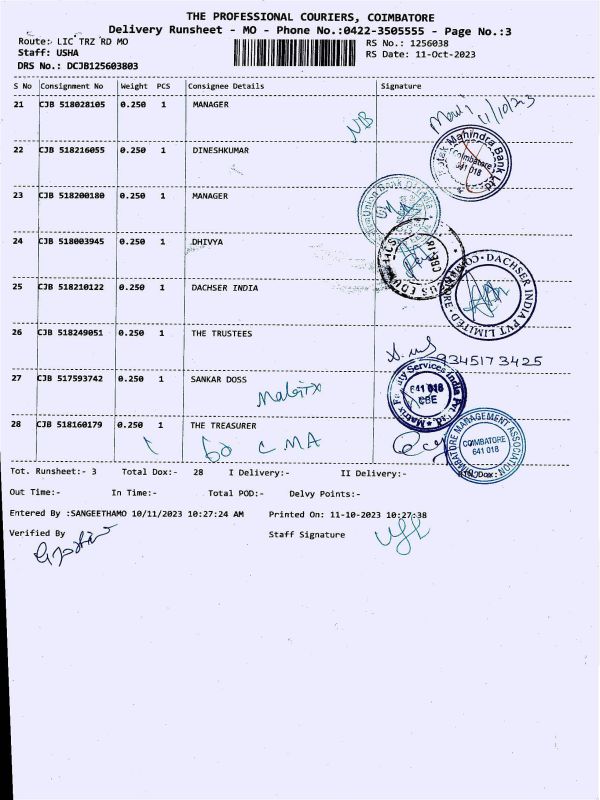 THE PROFESSIONAL COURIERS, COIMBATORE
Delivery Runsheet - MO - Phone No.:0422-3505555 - Page No.:3
Route: LIC TRZ RD MO
RS No.: 1256038
Staff: USHA
RS Date: 11-Oct-2023
DRS No.: DCJB125603803
S No Consignment No Weight PCS Consignee Details Signature
21 CJB 518028105 0.250 1 MANAGER
11/10/23
22 CJB 518216055 0.250 1 DINESHKUMAR
Kotak Mahindra Bank Ltd Coimbatore 641 018
23 CJB 518200180 0.250 1 MANAGER
Union Bank Of India
24 CJB 518003945 0.250 1 DHIVYA
CBE-18
25 CJB 518210122 0.250 1 DACHSER INDIA
DACHSER INDIA PVT LIMITED COIMBATORE
26 CJB 518249051 0.250 1 THE TRUSTEES
9345173425
27 CJB 517593742 0.250 1 SANKAR DOSS
Matrix
Services India Pvt Ltd. Matrix 641 018 CBE
28 CJB 518160179 0.250 1 THE TREASURER
CMA
COIMBATORE MANAGEMENT ASSOCIATION COIMBATORE 641 018
Tot. Runsheet:- 3 Total Dox:- 28 I Delivery:- II Delivery:-
Out Time:- In Time:- Total POD:- Delvy Points:-
Entered By :SANGEETHAMO 10/11/2023 10:27:24 AM Printed On: 11-10-2023 10:27:38
Verified By Staff Signature